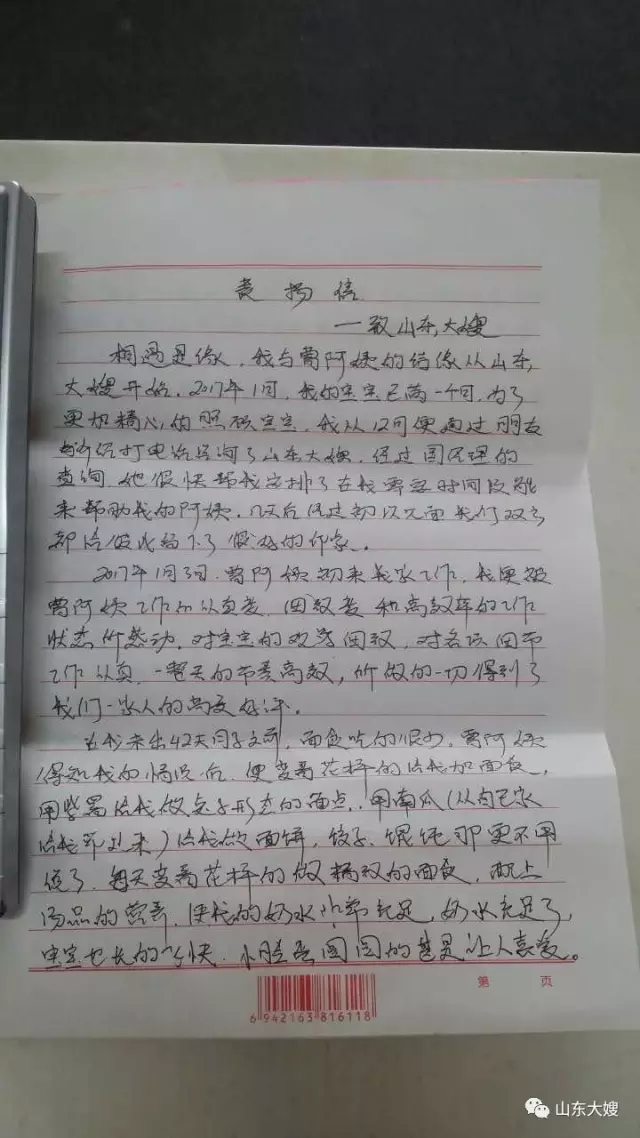 表扬信
一致山东大嫂
相遇是缘，我与曹阿姨的结缘从山东
大嫂开始。2017年1月，我的宝宝已满一个月，为了
更加精心的照顾宝宝，我从12月便通过朋友
介绍打电话咨询了山东大嫂，经过 经理的
查询，她很快帮我安排了在我需要时间段能
来帮助我的阿姨。几天后经过初次见面我们双方
都给彼此留下了很好的印象。
2017年1月3日，曹阿姨初来我家工作，我便被
曹阿姨工作的认真劲、细致劲和高效率的工作
状态所感动。对宝宝的观察细致，对各项细节
工作认真，一整天的节奏高效，所做的一切得到了
我们一家人的高度好评。
在我未出42天月子之前，面食吃的很少，曹阿姨
得知我的情况后，便变着花样的给我加面食，
用紫薯给我做 子形态的面点，用南瓜（从自己家
给我 来）给我做面饼，饺子、馄饨那更不用
说了，每天变着花样的做精致的面食，配上
汤品的营养，使我的奶水非常充足，奶水充足了，
宝宝也长的飞快，小脸蛋圆圆的甚是让人喜爱。
第 页
6 942163 816118
山东大嫂